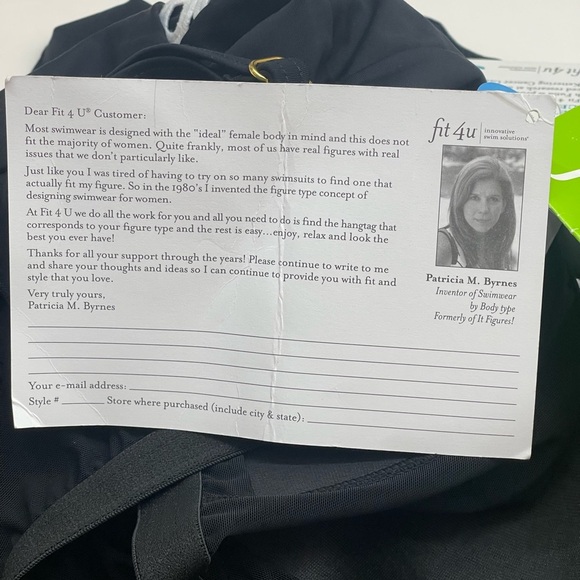 Dear Fit 4 U® Customer:
Most swimwear is designed with the "ideal" female body in mind and this does not
fit the majority of women. Quite frankly, most of us have real figures with real
issues that we don't particularly like.
Just like you I was tired of having to try on so many swimsuits to find one that
actually fit my figure. So in the 1980's I invented the figure type concept of
designing swimwear for women.
At Fit 4 U we do all the work for you and all you need to do is find the hangtag that
corresponds to your figure type and the rest is easy...enjoy, relax and look the
best you ever have!
Thanks for all your support through the years! Please continue to write to me
and share your thoughts and ideas so I can continue to provide you with fit and
style that you love.
Very truly yours,
Patricia M. Byrnes
Your e-mail address:
Style # Store where purchased (include city & state):
fit 4u innovative
swim solutions®
Patricia M. Byrnes
Inventor of Swimwear
by Body type
Formerly of It Figures!
fit 4u